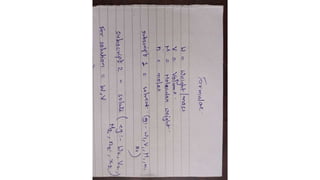 Formulae
W = Weight/mass
V = Volume
M = Molecular weight
n = moles
subscript 1 = solvent (eg:- W1, V1, M1, n1
x1)
subscript 2 = solute (eg:- W2, V2,
M2, n2, x2)
For solution = W, V